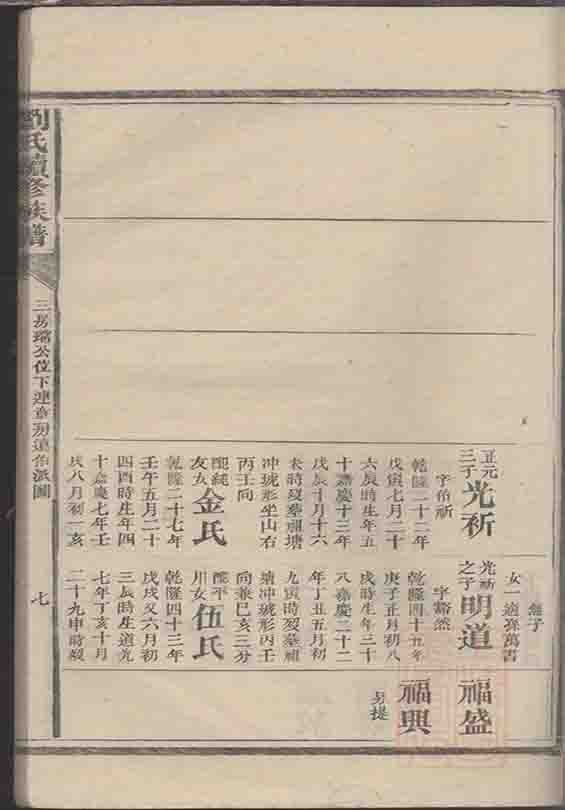 正元
三子
光祈
字伯祈
乾隆二十二年
戊寅七月二十
六辰時生年五
十嘉慶十三年
戊辰十月十六
未時歿墓祖塘
冲琥形坐山右
丙壬向
配純
友女
金氏
乾隆二十七年
壬午五月二十
四酉時生年四
十嘉慶七年壬
戌八月初一亥
女一適 萬書
光祈
之子
明道
字 然
乾隆四十五年
庚子正月初八
戌時生年三十
八嘉慶二十二
年丁丑五月初
九寅時歿墓祖
塘冲琥形丙壬
向兼巳亥三分
配不
川女
伍氏
乾隆四十三年
戊戌又六月初
三辰時生道光
七年丁亥十月
二十九申時歿
福盛
福興
另提
劉氏續修族譜
三房 公位下連 房 派圖
七